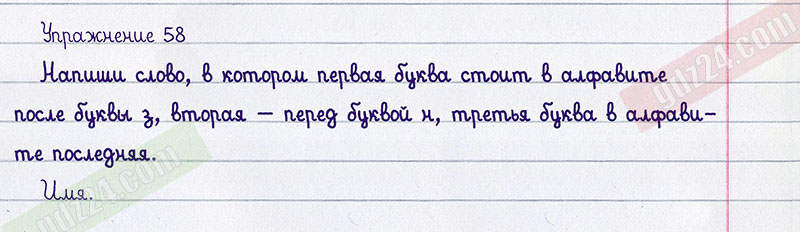 Упражнение 58
Напиши слово, в котором первая буква стоит в алфавите
после буквы з, вторая — перед буквой н, третья буква в алфави-
те последняя.
Имя.
gdz24.com
gdz24.com